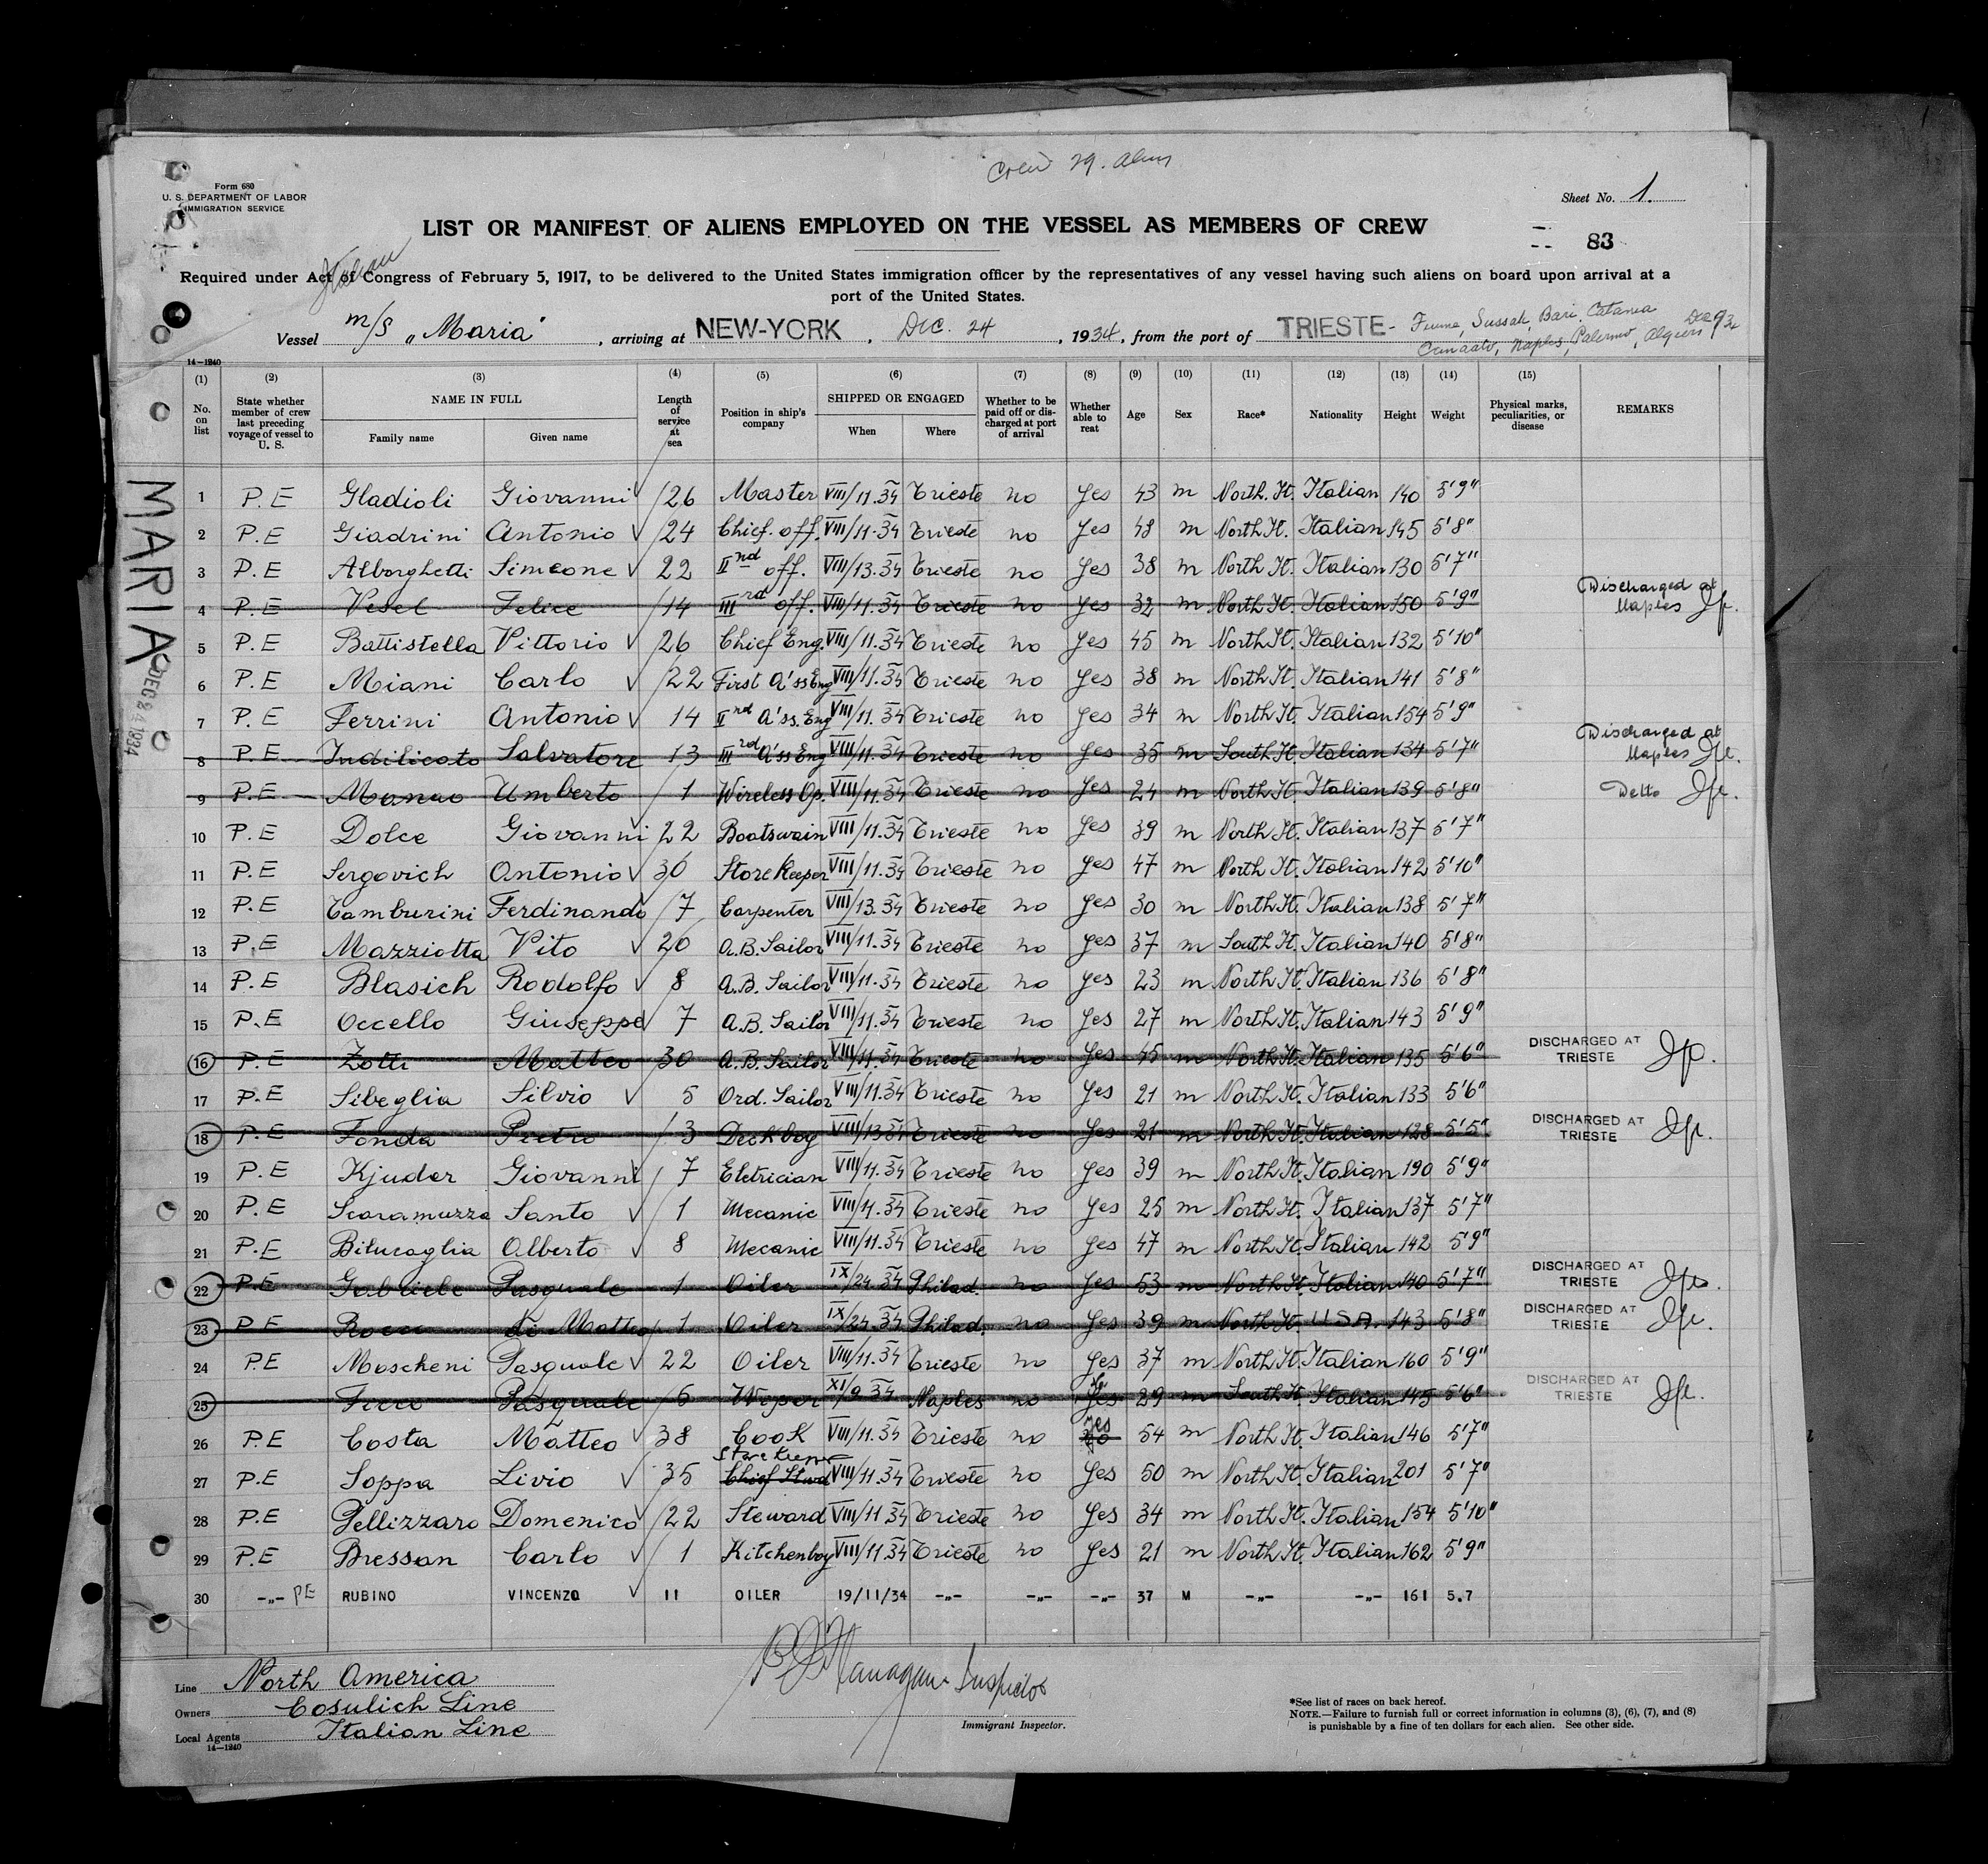 Crew 29. Aliens
Form 680
U. S. DEPARTMENT OF LABOR
IMMIGRATION SERVICE
Sheet No. 1.
LIST OR MANIFEST OF ALIENS EMPLOYED ON THE VESSEL AS MEMBERS OF CREW
83
Italian
Required under Act of Congress of February 5, 1917, to be delivered to the United States immigration officer by the representatives of any vessel having such aliens on board upon arrival at a
port of the United States.
Vessel m/s „Maria", arriving at NEW-YORK, Dec. 24, 1934, from the port of TRIESTE- Fiume, Sussak, Bari, Catania
Naples, Palermo, Algiers
14-1240
(1) (2) (3) (4) (5) (6) (7) (8) (9) (10) (11) (12) (13) (14) (15)
No. on list State whether member of crew last preceding voyage of vessel to U. S. NAME IN FULL Family name Given name Length of service at sea Position in ship's company SHIPPED OR ENGAGED When Where Whether to be paid off or discharged at port of arrival Whether able to reat Age Sex Race* Nationality Height Weight Physical marks, peculiarities, or disease REMARKS
1 P.E Gladioli Giovanni 26 Master VIII/11.34 Trieste no yes 43 m North.It. Italian 140 5'9"
2 P.E Giadrini Antonio 24 Chief.off. VIII/11.34 Trieste no yes 48 m North It. Italian 145 5'8"
3 P.E Alborghetti Simeone 22 IInd off. VIII/13.34 Trieste no yes 38 m North It. Italian 130 5'7"
4 P.E Vesel Felice 14 IIIrd off. VIII/11.34 Trieste no yes 32 m North It. Italian 150 5'9" Discharged at Naples
5 P.E Battistella Vittorio 26 Chief Eng. VIII/11.34 Trieste no yes 45 m North It. Italian 132 5'10"
6 P.E Miani Carlo 22 First A'ss Eng VIII/11.34 Trieste no yes 38 m North It. Italian 141 5'8"
7 P.E Ferrini Antonio 14 IInd A'ss.Eng VIII/11.34 Trieste no yes 34 m North It. Italian 154 5'9"
8 P.E Indilicato Salvatore 13 IIIrd A'ss Eng VIII/11.34 Trieste no yes 35 m South It. Italian 134 5'7" Discharged at Naples
9 P.E Manao Umberto 1 Wireless Op. VIII/11.34 Trieste no yes 24 m North It. Italian 139 5'8"
10 P.E Dolce Giovanni 22 Boatswain VIII/11.34 Trieste no yes 39 m North It. Italian 137 5'7"
11 P.E Sergovich Antonio 30 Store Keeper VIII/11.34 Trieste no yes 47 m North It. Italian 142 5'10"
12 P.E Tamburini Ferdinando 7 Carpenter VIII/13.34 Trieste no yes 30 m North It. Italian 138 5'7"
13 P.E Mazziotta Vito 20 A.B. Sailor VIII/11.34 Trieste no yes 37 m South It. Italian 140 5'8"
14 P.E Blasich Rodolfo 8 A.B. Sailor VIII/11.34 Trieste no yes 23 m North It. Italian 136 5'8"
15 P.E Occello Giuseppe 7 A.B. Sailor VIII/11.34 Trieste no yes 27 m North It. Italian 143 5'9"
16 P.E Zotti Matteo 30 A.B. Sailor VIII/11.34 Trieste no yes 45 m North It. Italian 135 5'6" DISCHARGED AT TRIESTE
17 P.E Sibeglia Silvio 5 Ord. Sailor VIII/11.34 Trieste no yes 21 m North It. Italian 133 5'6"
18 P.E Fonda Pietro 3 Deck boy VIII/13 34 Trieste no yes 21 m North It. Italian 128 5'5" DISCHARGED AT TRIESTE
19 P.E Kjuder Giovanni 7 Eletrician VIII/11.34 Trieste no yes 39 m North It. Italian 190 5'9"
20 P.E Scaramuzza Santo 1 Mecanic VIII/11.34 Trieste no yes 25 m North It. Italian 137 5'7"
21 P.E Bilucaglia Alberto 8 Mecanic VIII/11.34 Trieste no yes 47 m North It. Italian 142 5'9"
22 P.E Gabriele Pasquale 1 Oiler IX/24.34 Philad. no yes 53 m North It. Italian 140 5'7" DISCHARGED AT TRIESTE
23 P.E Rocco di Matteo 1 Oiler IX/24.34 Philad. no yes 39 m North It. U.S.A. 143 5'8" DISCHARGED AT TRIESTE
24 P.E Moscheni Pasquale 22 Oiler VIII/11.34 Trieste no yes 37 m North It. Italian 160 5'9"
25 Pasquale 6 Wiper XI/9 34 Naples no yes 29 m South It. Italian 145 5'6" DISCHARGED AT TRIESTE
26 P.E Costa Matteo 38 Cook VIII/11.34 Trieste no yes 54 m North It. Italian 146 5'7"
27 P.E Soppa Livio 35 Store Keeper Chief Stwd VIII/11.34 Trieste no yes 50 m North It. Italian 201 5'7"
28 P.E Pellizzaro Domenico 22 Steward VIII/11 34 Trieste no yes 34 m North It. Italian 154 5'10"
29 P.E Bressan Carlo 1 Kitchenboy VIII/11.34 Trieste no yes 21 m North It. Italian 162 5'9"
30 -„- PE RUBINO VINCENZO 11 OILER 19/11/34 -„- -„- -„- 37 M -„- -„- 161 5.7
MARIA
DEC 24 1934
Line North America
Owners Cosulich Line
Local Agents Italian Line
14-1240
Flanagan Inspector
Immigrant Inspector.
*See list of races on back hereof.
NOTE.—Failure to furnish full or correct information in columns (3), (6), (7), and (8)
is punishable by a fine of ten dollars for each alien. See other side.